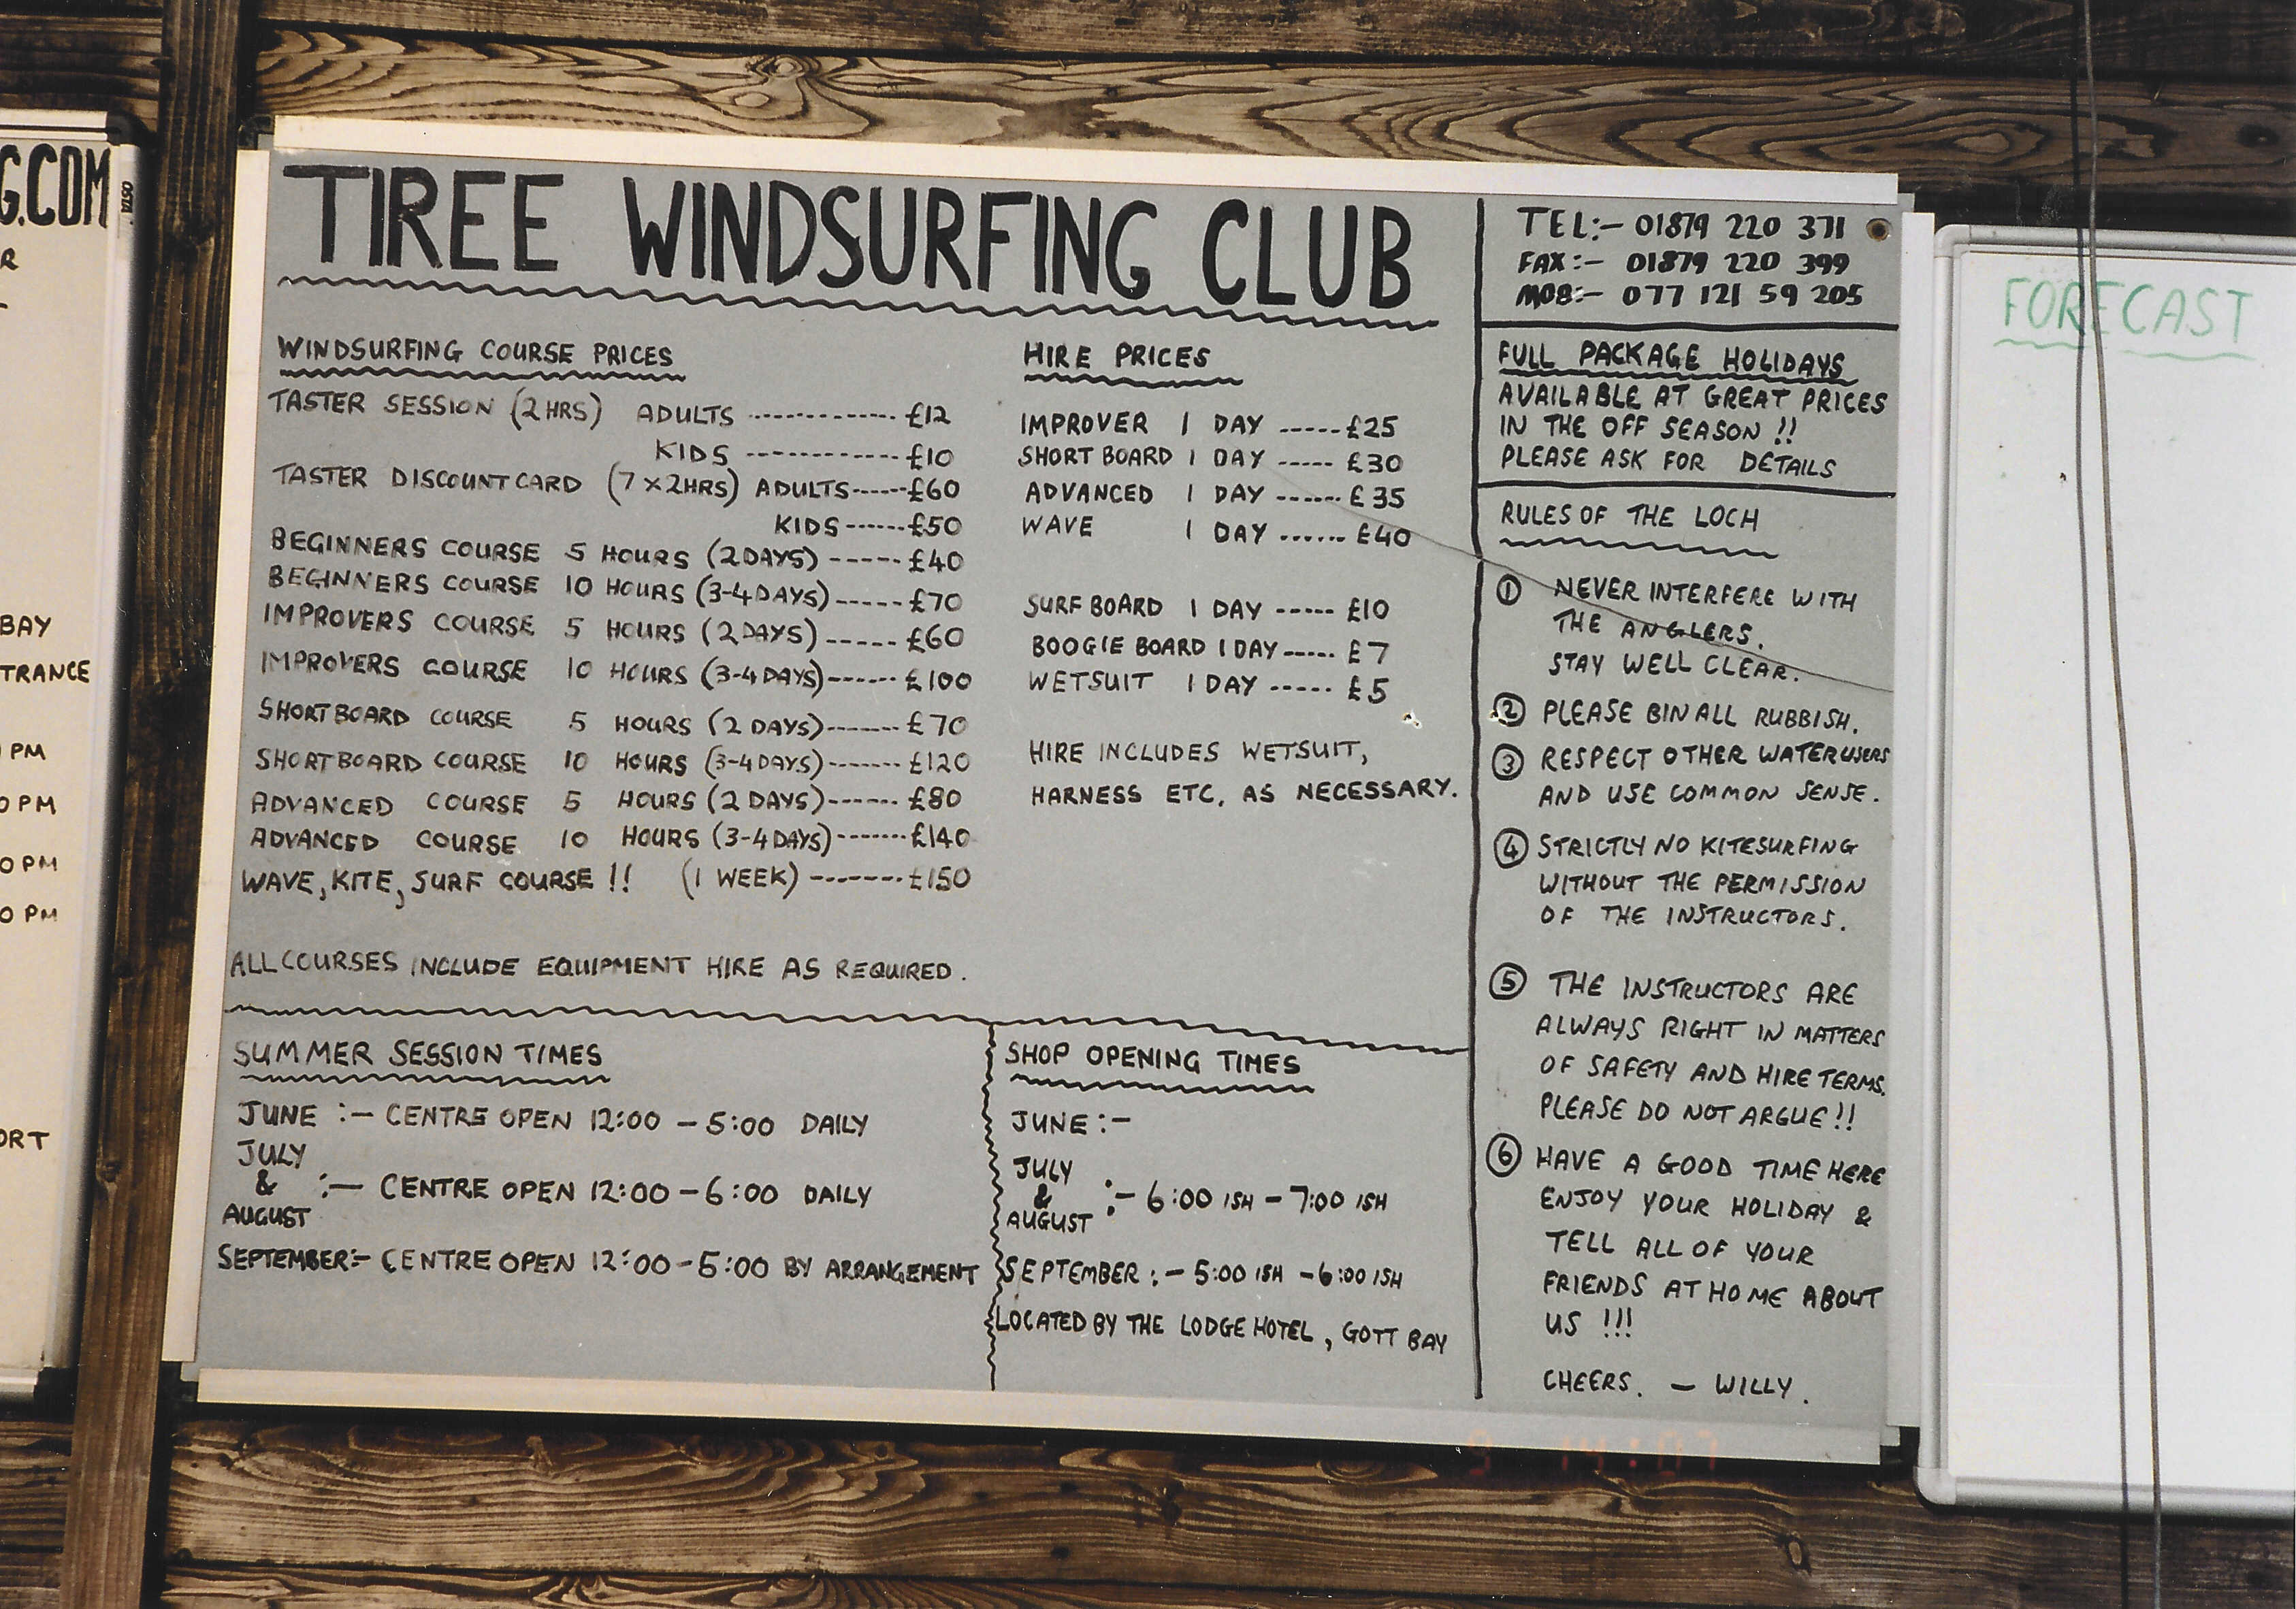 G.COM
R
BAY
TRANCE
PM
0 PM
0 PM
0 PM
ORT
TIREE WINDSURFING CLUB
WINDSURFING COURSE PRICES
TASTER SESSION (2HRS) ADULTS ------------- £12
KIDS ------------ £10
TASTER DISCOUNT CARD (7 X 2HRS) ADULTS ------ £60
KIDS ------ £50
BEGINNERS COURSE 5 HOURS (2 DAYS) ----- £40
BEGINNERS COURSE 10 HOURS (3-4 DAYS) ----- £70
IMPROVERS COURSE 5 HOURS (2 DAYS) ----- £60
IMPROVERS COURSE 10 HOURS (3-4 DAYS) ------ £100
SHORTBOARD COURSE 5 HOURS (2 DAYS) ------- £70
SHORTBOARD COURSE 10 HOURS (3-4 DAYS) ------- £120
ADVANCED COURSE 5 HOURS (2 DAYS) ------- £80
ADVANCED COURSE 10 HOURS (3-4 DAYS) ------- £140
WAVE, KITE, SURF COURSE !! (1 WEEK) ------- £150
ALL COURSES INCLUDE EQUIPMENT HIRE AS REQUIRED.
HIRE PRICES
IMPROVER 1 DAY ----- £25
SHORT BOARD 1 DAY ----- £30
ADVANCED 1 DAY ------ £35
WAVE 1 DAY ------ £40
SURF BOARD 1 DAY ----- £10
BOOGIE BOARD 1 DAY ----- £7
WETSUIT 1 DAY ----- £5
HIRE INCLUDES WETSUIT,
HARNESS ETC, AS NECESSARY.
SUMMER SESSION TIMES
JUNE :- CENTRE OPEN 12:00 - 5:00 DAILY
JULY
& :- CENTRE OPEN 12:00 - 6:00 DAILY
AUGUST
SEPTEMBER:- CENTRE OPEN 12:00 - 5:00 BY ARRANGEMENT
SHOP OPENING TIMES
JUNE :-
JULY
& :- 6:00 ISH - 7:00 ISH
AUGUST
SEPTEMBER :- 5:00 ISH - 6:00 ISH
LOCATED BY THE LODGE HOTEL, GOTT BAY
TEL:- 01879 220 371
FAX:- 01879 220 399
MOB:- 077 121 59 205
FULL PACKAGE HOLIDAYS
AVAILABLE AT GREAT PRICES
IN THE OFF SEASON !!
PLEASE ASK FOR DETAILS
RULES OF THE LOCH
① NEVER INTERFERE WITH
THE ANGLERS.
STAY WELL CLEAR.
② PLEASE BIN ALL RUBBISH.
③ RESPECT OTHER WATERUSERS
AND USE COMMON SENSE.
④ STRICTLY NO KITESURFING
WITHOUT THE PERMISSION
OF THE INSTRUCTORS.
⑤ THE INSTRUCTORS ARE
ALWAYS RIGHT IN MATTERS
OF SAFETY AND HIRE TERMS.
PLEASE DO NOT ARGUE!!
⑥ HAVE A GOOD TIME HERE
ENJOY YOUR HOLIDAY &
TELL ALL OF YOUR
FRIENDS AT HOME ABOUT
US !!!
CHEERS. - WILLY.
FORECAST
9 14:07